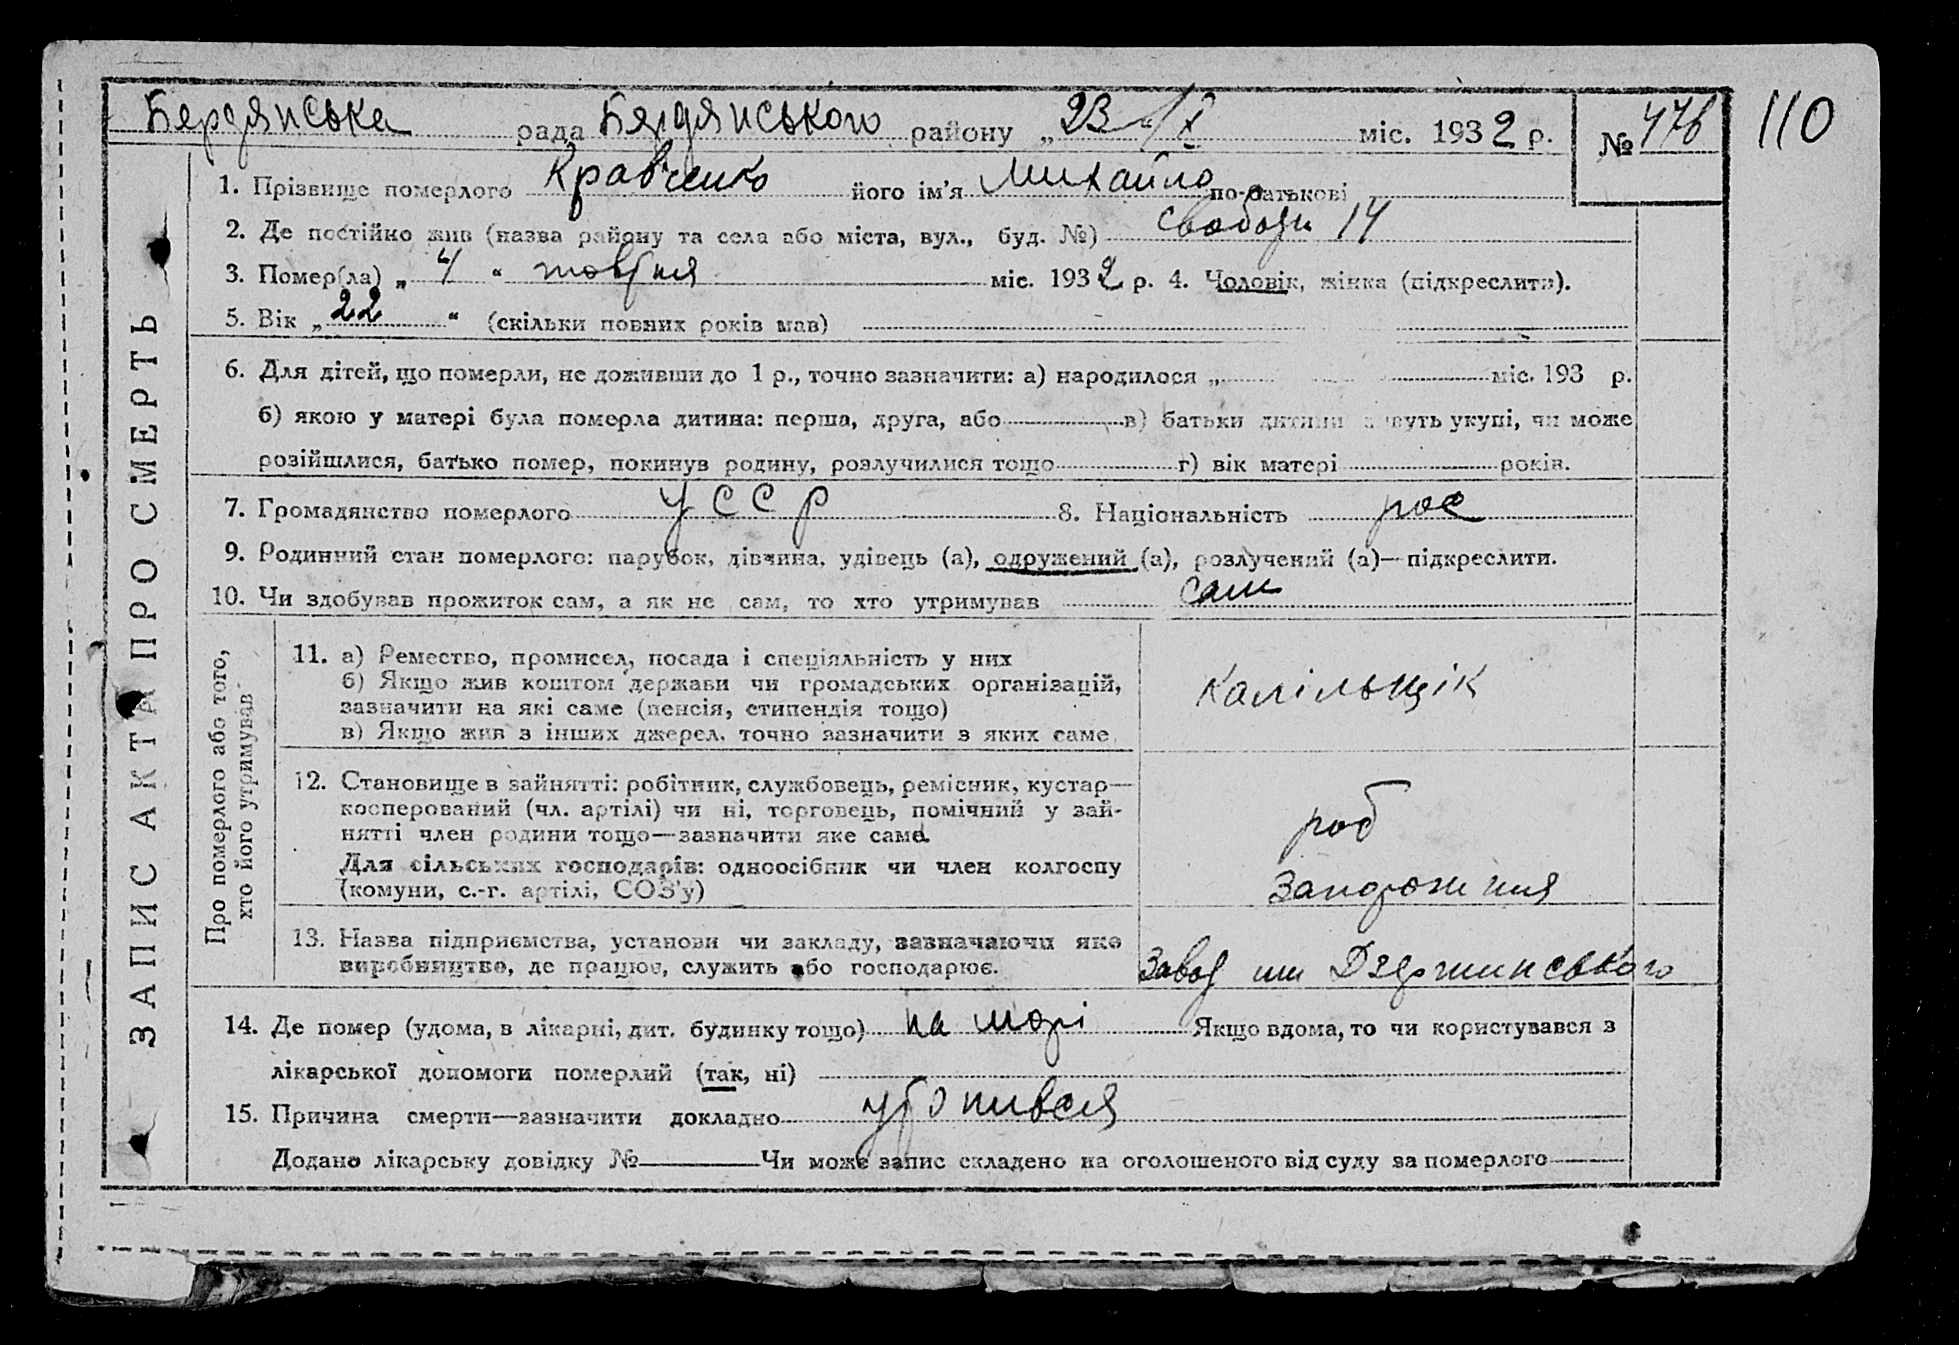 Бердянська рада Бердянського району „ 23 "/X міс. 1932 р. № 476 110
1. Прізвище померлого Кравченко його ім’я Михайло по-батькові
2. Де постійно жив (назва району та села або міста, вул., буд. №) Свободи 14
3. Помер(ла) „ 4 “ жовтня міс. 1932 р. 4. Чоловік, жінка (підкреслити).
5. Вік „ 22 “ (скільки повних років мав)
6. Для дітей, що померли, не доживши до 1 р., точно зазначити: а) народилося „ міс. 193 р.
б) якою у матері була померла дитина: перша, друга, або в) батьки дитини живуть укупі, чи може
розійшлися, батько помер, покинув родину, розлучилися тощо г) вік матері років.
7. Громадянство померлого УССР 8. Національність рос
9. Родинний стан померлого: парубок, дівчина, удівець (а), одружений (а), розлучений (а)—підкреслити.
10. Чи здобував прожиток сам, а як не сам, то хто утримував сам
ЗАПИС АКТА ПРО СМЕРТЬ
Про померлого або того,
хто його утримував
11. а) Ремество, промисел, посада і спеціяльність у них
б) Якщо жив коштом держави чи громадських організацій,
зазначити на які саме (пенсія, стипендія тощо)
в) Якщо жив з інших джерел. точно зазначити з яких саме
Калільщік
12. Становище в зайнятті: робітник, службовець, ремісник, кустар—
косперований (чл. артілі) чи ні, торговець, помічний у зай-
нятті член родини тощо—зазначити яке саме.
Для сільських господарів: одноосібник чи член колгоспу
(комуни, с.-г. артілі, СОЗ'у)
роб
Запоріжжя
13. Назва підприємства, установи чи закладу, зазначаючи яке
виробництво, де працює, служить або господарює.
Завод им Дзержинського
14. Де помер (удома, в лікарні, дит. будинку тощо) на морі Якщо вдома, то чи користувався з
лікарської допомоги померлий (так, ні)
15. Причина смерти—зазначити докладно утопився
Додано лікарську довідку № Чи може запис складено на оголошеного від суду за померлого